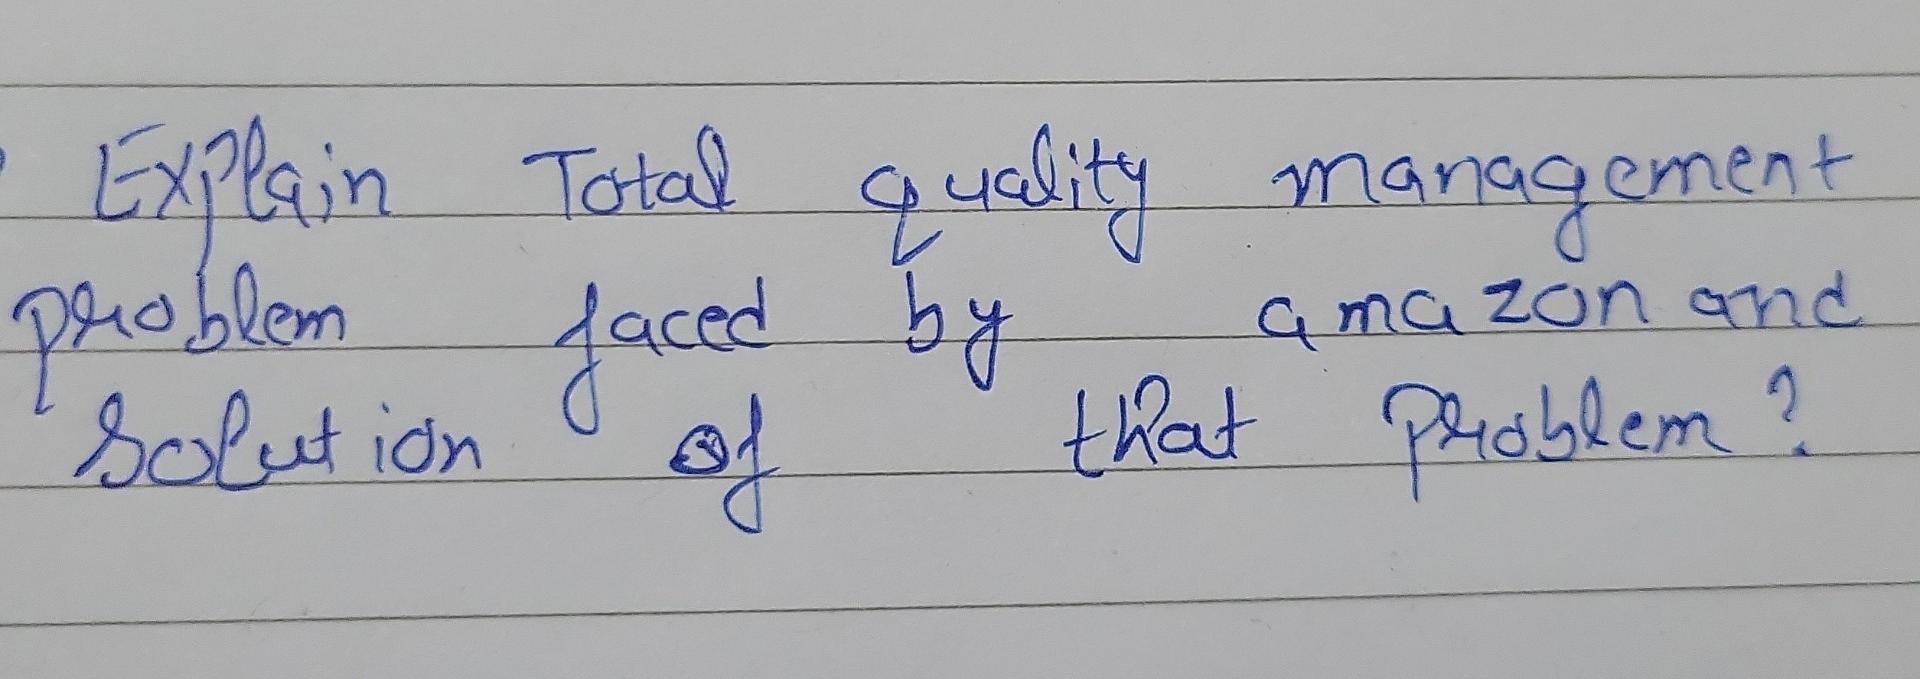 Explain Total quality management
problem faced by amazon and
Solution of that problem?